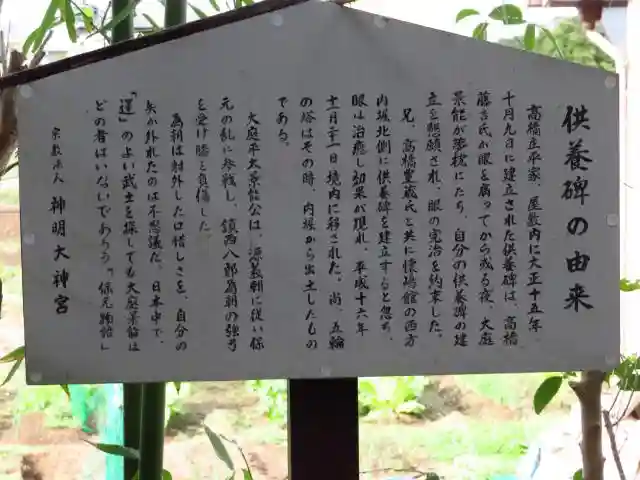 供養碑の由来
高橋庄平家、屋敷内に大正十五年
十月九日に建立された供養碑は、高橋
藤吉氏が眼を病ってから或る夜、大庭
景能が夢枕にたち、自分の供養碑の建
立を懇願され、眼の完治を約束した。
兄、高橋重蔵氏と共に懐嶋館の西方
内堀北側に供養碑を建立すると忽ち、
眼は治癒し効果が現れ、平成十六年
十二月二十一日境内に移された。尚、五輪
の塔はその時、内堀から出土したもの
である。
大庭平太景能公は、源義朝に従い保
元の乱に参戦し、鎮西八郎為朝の強弓
を受け膝を負傷した。
為朝は射外した口惜しさを、自分の
矢が外れたのは不思議だ。日本中で、
「運」のよい武士を探しても大庭景能は
どの者はいないであろう。「保元物語」
宗教法人 神明大神宮